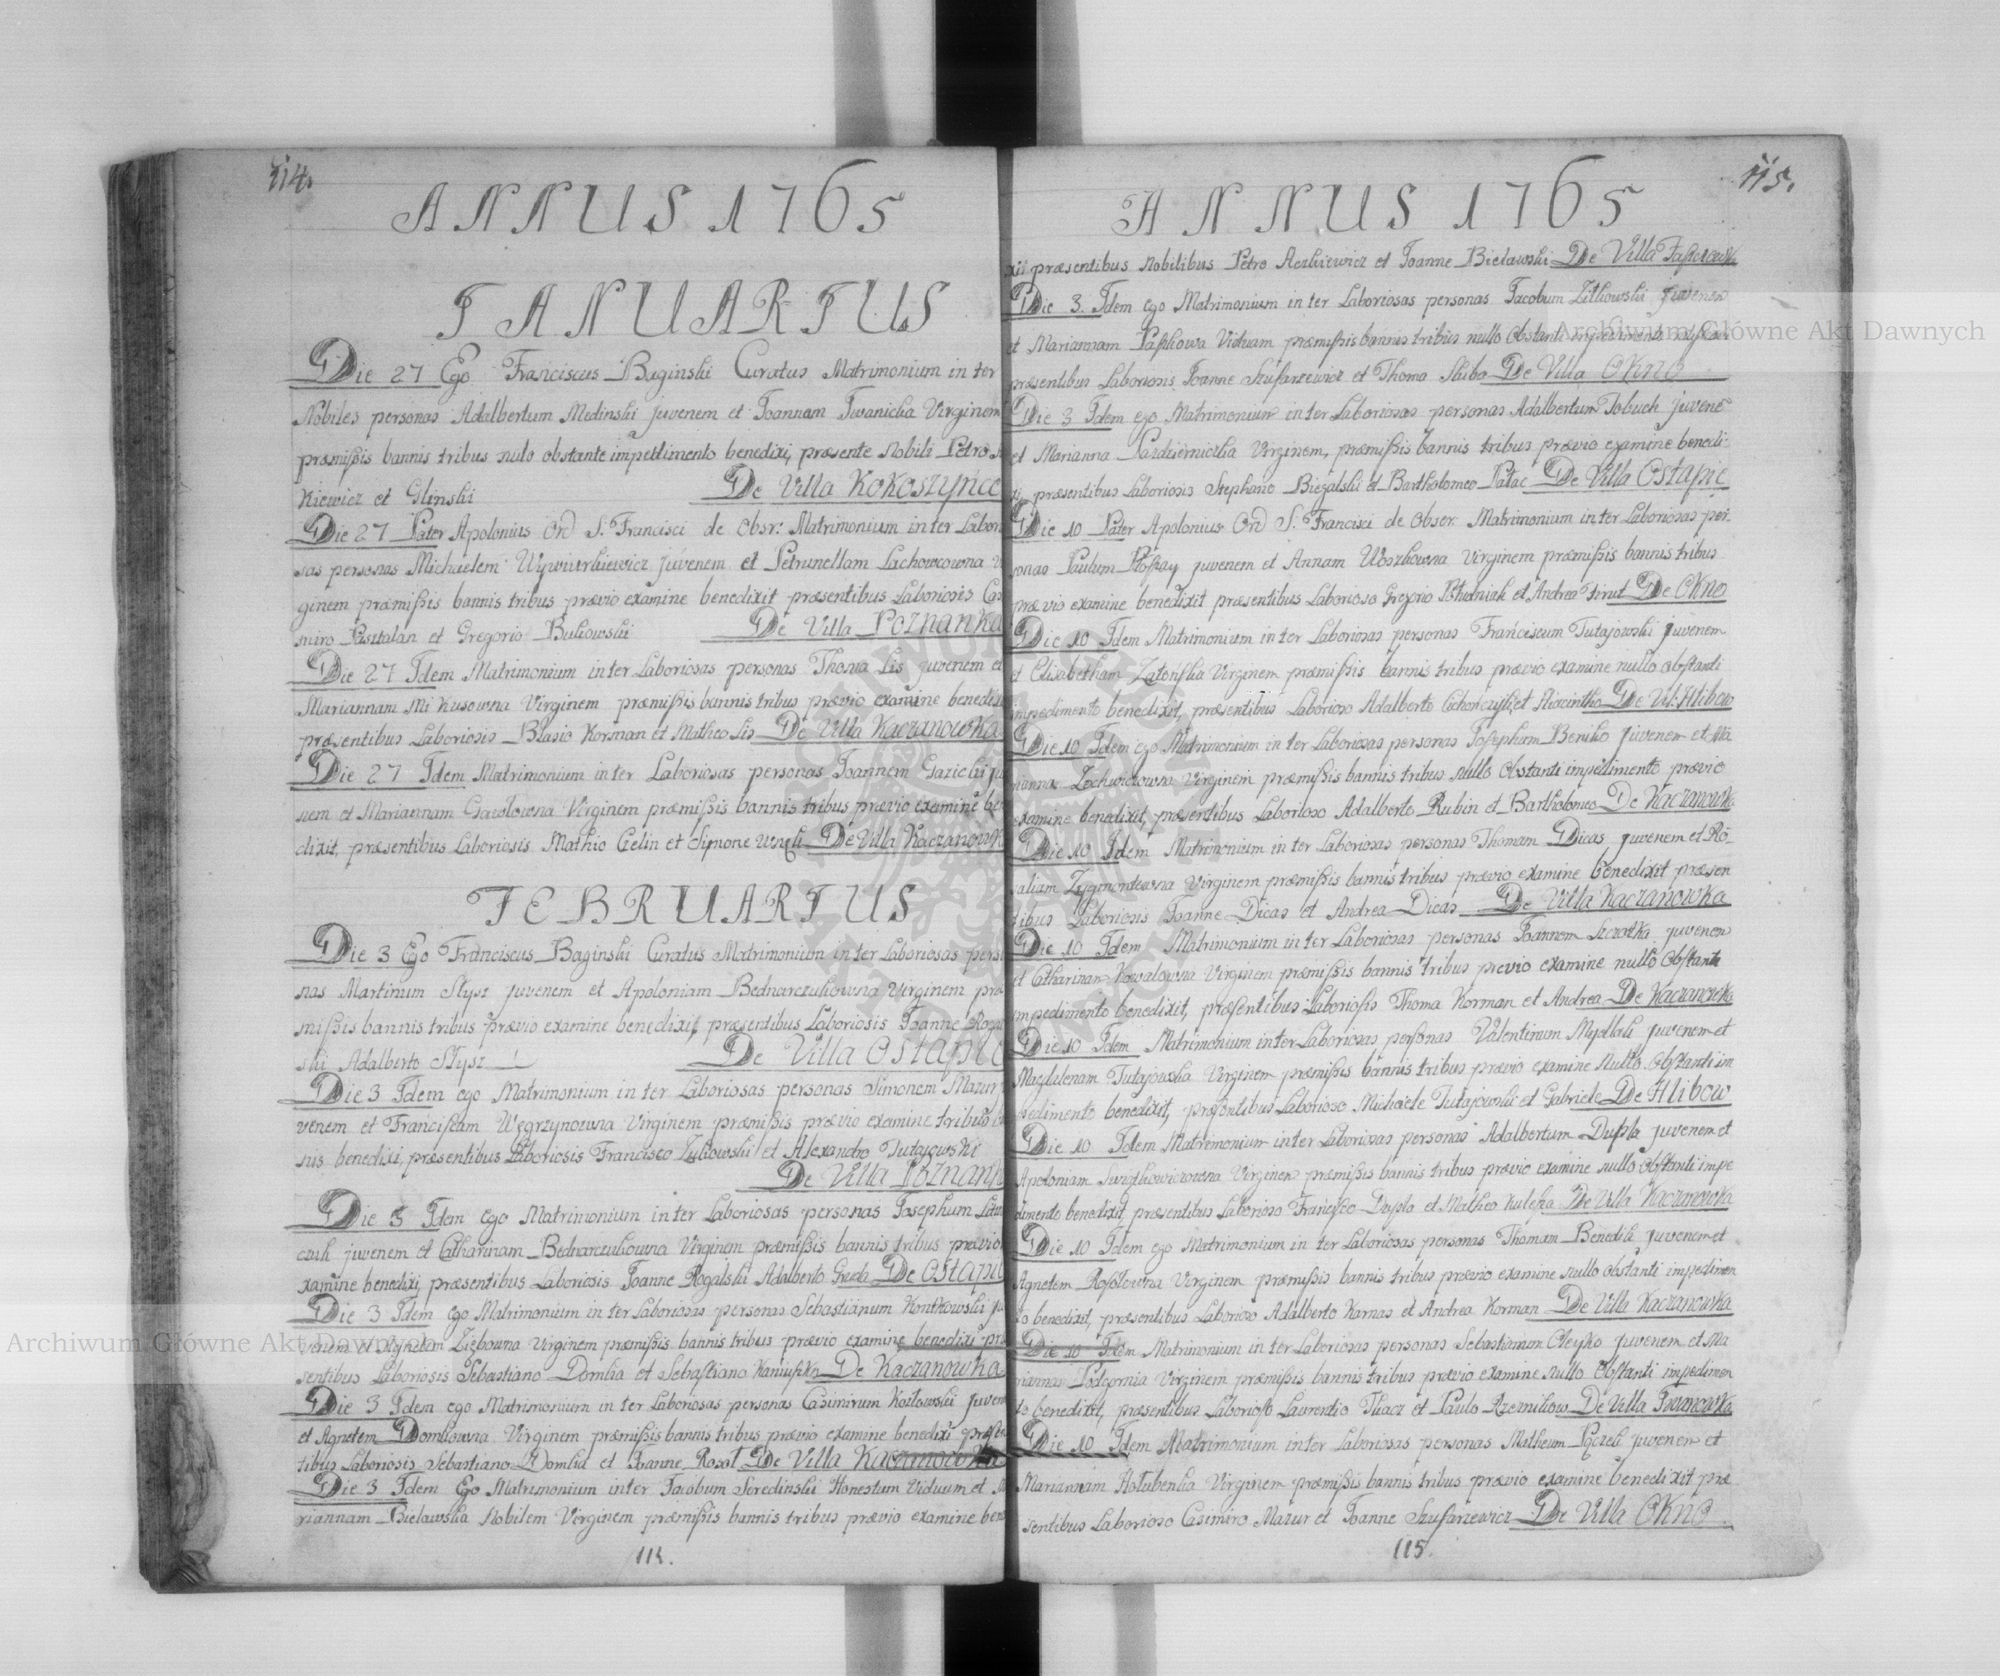 114.
ANNUS 1765
IANUARIUS
Die 27 Ego Franciscus Baginski Curatus Matrimonium in ter
Nobiles personas Adalbertum Medinski juvenem et Joannam Iwanicka Virginem
præmissis bannis tribus nulo obstante impedimento benedixi, præsente Nobili Petro
Kiewicz et Glinski De Villa Kokoszyńce
Die 27 Pater Apolonius Ord S. Francisci de Obsr: Matrimonium in ter Labori
sas personas Michaelem juvenem et Petrunellam Lachowcowna
ginem præmissis bannis tribus prævio examine benedixit præsentibus Laboriosis Ca
miro et Gregorio Bukowski De Villa Poznanka
Die 27 Idem Matrimonium in ter Laboriosas personas Thoma Lis juvenem et
Mariannam Mikusowna Virginem præmissis bannis tribus prævio examine benedixi
præsentibus Laboriosis Blasio Korman et Matheo Lis De Villa Kaczanowka
Die 27 Idem Matrimonium in ter Laboriosas personas Joannem Gazicki ju
nem et Mariannam Virginem præmissis bannis tribus prævio examine be
dixit, præsentibus Laboriosis Mathio Gelin et Simone De Villa Kaczanowk
FEBRUARIUS
Die 3 Ego Franciscus Baginski Curatus Matrimonium in ter Laboriosas perso
nas Martinum Slysz juvenem et Apoloniam Bednarczukowna Virginem præ
missis bannis tribus prævio examine benedixi, præsentibus Laboriosis Joanne Roga
ski Adalberto Slysz De Villa Ostapie
Die 3 Idem ego Matrimonium in ter Laboriosas personas Simonem Mazur
venem et Franciscam Węgrzynowna Virginem præmissis prævio examine tribus
nis benedixi, præsentibus Laboriosis Francisco Zukowski et Alexandro Tutajowski
De Villa Poznank
Die 3 Idem ego Matrimonium in ter Laboriosas personas Josephum
czuk juvenem et Catharinam Bednarczukowna Virginem præmissis bannis tribus prævio
xamine benedixi, præsentibus Laboriosis Joanne Rogalski Adalberto Gruda De Ostapie
Die 3 Idem ego Matrimonium in ter Laboriosas personas Sebastianum Kontkowski ju
venem et Agnetam Virginem præmissis bannis tribus prævio examine benedixi præ
sentibus Laboriosis Sebastiano Domlia et Sebastiano De Kaczanowka
Die 3 Idem ego Matrimonium in ter Laboriosas personas Casimirum Kozlowski juven
et Agnetem Domliowna Virginem præmissis bannis tribus prævio examine benedixi præsen
tibus Laboriosis Sebastiano Domlia et Joanne Rosol De Villa Kaczanowka
Die 3 Idem Ego Matrimonium inter Jacobum Seredinski Honestum Viduum et
riannam Bielawska Nobilem Virginem præmissis bannis tribus prævio examine bene
114.
115.
ANNUS 1765
xit præsentibus Nobilibus Petro et Joanne Bielawski De Villa
Die 3. Idem ego Matrimonium in ter Laboriosas personas Jacobum Zitkowski juvenem
et Mariannam Paskowa Viduam præmissis bannis tribus nullo Obstanti impedimento
præsentibus Laboriosis Joanne Szufarzewicz et Thoma Skiba De Villa Okno
Die 3 Idem ego Matrimonium in ter Laboriosas personas Adalbertum Tobuch juvenē
et Marianna Virginem, præmissis bannis tribus prævio examine benedi:
xi, præsentibus Laboriosis Stephano Biegalski et Bartholomeo Palac De Villa Ostapie
Die 10 Pater Apolonius Ord S. Francisci de Obser. Matrimonium in ter Laboriosas per:
sonas Paulum juvenem et Annam Woszkowna Virginem præmissis bannis tribus
prævio examine benedixit præsentibus Laborioso Gregorio et Andrea Firut De Okno
Die 10 Idem Matrimonium in ter Laboriosas personas Franciscum Tutajowski juvenem
et Elisabetham Zatorska Virginem præmissis bannis tribus prævio examine nullo obstanti
impedimento benedixit, præsentibus Laborioso Adalberto et Hiacintho De Vil: Hlibow
Die 10 Idem ego Matrimonium in ter Laboriosas personas Josepham Benko juvenem et Ma
rianna Virginem præmissis bannis tribus Nullo Obstanti impedimento prævio
examine benedixit, præsentibus Laborioso Adalberto Rubin et Bartholomeo De Kaczanowka
Die 10 Idem Matrimonium in ter Laboriosas personas Thomam Dicas juvenem et Ro-
saliam Zygmontowna Virginem præmissis bannis tribus prævio examine benedixit præsen
tibus Laboriosis Joanne Dicas et Andrea Dicas De Villa Kaczanowka
Die 10 Idem Matrimonium in ter Laboriosas personas Joannem juvenem
et Catharinam Kowalowna Virginem præmissis bannis tribus prævio examine nullo Obstanti
impedimento benedixit, præsentibus Laboriosis Thoma Korman et Andrea De Kaczanowka
Die 10 Idem Matrimonium in ter Laboriosas personas Valentinum juvenem et
Magdalenam Tutajowska Virginem præmissis bannis tribus prævio examine Nullo Obstanti im
pedimento benedixit, præsentibus Laborioso Michaele Tutajowski et Gabriele De Hlibow
Die 10 Idem Matrimonium in ter Laboriosas personas Adalbertum Dupla juvenem et
Apoloniam Virginem præmissis bannis tribus prævio examine nullo Obstanti impe
dimento benedixit, præsentibus Laborioso Francisco Dupla et Matheo Kulesza De Villa Kaczanowka
Die 10 Idem ego Matrimonium in ter Laboriosas personas Thomam Benedik juvenem et
Agnetem Rosolowna Virginem præmissis bannis tribus prævio examine nullo obstanti impedimen
to benedixit, præsentibus Laborioso Adalberto Karnas et Andrea Korman De Villa Kaczanowka
Die 10 Idem Matrimonium in ter Laboriosas personas Sebastianum Oleysko juvenem et Ma
riannam Podgornia Virginem præmissis bannis tribus prævio examine nullo Obstanti impedimen
to benedixit, præsentibus Laborioso Laurentio Tkacz et Paulo De Villa Iwanowka
Die 10 Idem Matrimonium inter Laboriosas personas Matheum juvenem et
Mariannam Holubenka Virginem præmissis bannis tribus prævio examine benedixit præ
sentibus Laborioso Casimiro Mazur et Joanne Szufarzewicz De Villa Okno
115.
Archiwum Główne Akt Dawnych
Archiwum Główne Akt Dawnych